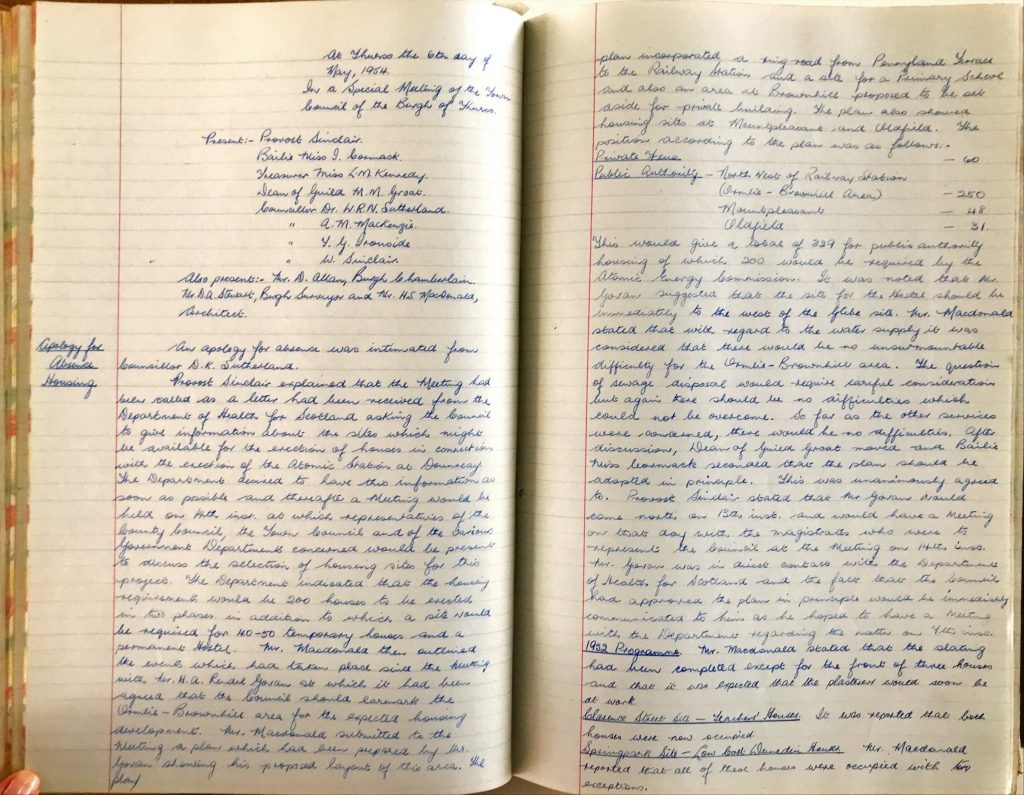 At Thurso the 6th day of
May, 1954.
In a Special Meeting of the Town
Council of the Burgh of Thurso.
Present:- Provost Sinclair.
Bailie Miss I. Cormack.
Treasurer Miss L.M. Kennedy.
Dean of Guild M.M. Groat.
Councillor Dr. W.R.N. Sutherland.
" A. M. Mackenzie.
" T. G. Ironside
" W. Sinclair.
Also present:- Mr. D. Allan, Burgh Chamberlain.
Mr. D.A. Stewart, Burgh Surveyor and Mr. H.S. MacDonald,
Architect.
Apology for
Absence
An apology for absence was intimated from
Councillor D.K. Sutherland.
Housing
Provost Sinclair explained that the Meeting had
been called as a letter had been received from the
Department of Health for Scotland asking the Council
to give information about the sites which might
be available for the erection of houses in connection
with the erection of the Atomic Station at Dounreay.
The Department desired to have this information as
soon as possible and thereafter a Meeting would be
held on 14th inst. at which representatives of the
County Council, the Town Council and of the various
Government Departments concerned would be present
to discuss the selection of housing sites for this
project. The Department indicated that the housing
requirement would be 200 houses to be erected
in two phases in addition to which a site would
be required for 40-50 temporary houses and a
permanent Hostel. Mr. Macdonald then outlined
the events which had taken place since the Meeting
with Mr. H.A. Rendel Govan at which it had been
agreed that the Council should earmark the
Ormlie - Brownhill area for the expected housing
development. Mr. Macdonald submitted to the
Meeting a plan which had been prepared by Mr.
Govan showing his proposed layout of this area. The
plan
plan incorporated a ring road from Pennyland Terrace
to the Railway Station and a site for a Primary School
and also an area at Brownhill proposed to be set
aside for private building. The plan also showed
housing sites at Mountpleasant and Oldfield. The
position according to the plan was as follows:-
Private Feus - 60
Public Authority - North West of Railway Station
(Ormlie - Brownhill Area) - 250
Mountpleasant - 48
Oldfield - 31.
This would give a total of 329 for public authority
housing of which 200 would be required by the
Atomic Energy Commission. It was noted that Mr.
Govan suggested that the site for the Hostel should be
immediately to the west of the Glebe site. Mr. Macdonald
stated that with regard to the water supply it was
considered that there would be no unsurmountable
difficulty for the Ormlie-Brownhill area. The question
of sewage disposal would require careful consideration
but again there should be no difficulties which
could not be overcome. So far as the other services
were concerned, there would be no difficulties. After
discussion, Dean of Guild Groat moved and Bailie
Miss Cormack seconded that the plan should be
adopted in principle. This was unanimously agreed
to. Provost Sinclair stated that Mr Govan would
come north on 13th inst. and would have a Meeting
on that day with the Magistrates who were to
represent the Council at the Meeting on 14th inst.
Mr. Govan was in direct contact with the Department
of Health for Scotland and the fact that the Council
had approved the plan in principle would be immediately
communicated to him as he hoped to have a Meeting
with the Department regarding the matter on 7th inst.
1952 Programme. Mr. Macdonald stated that the slating
had been completed except for the front of three houses
and that it was expected that the plasterers would soon be
at work.
Clarence Street Site - Teachers' Houses. It was reported that both
houses were now occupied.
Springpark Site - Low Cost Dunedin Houses. Mr. Macdonald
reported that all of these houses were occupied with two
exceptions.